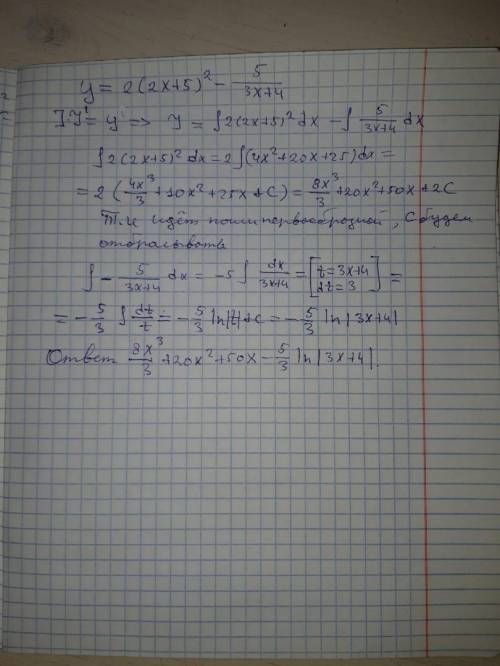 y = 2(2x+5)² - 5/(3x+4)
J.J' = y' => J = ∫2(2x+5)² dx - ∫ 5/(3x+4) dx
∫2(2x+5)² dx = 2∫(4x²+20x+25)dx =
= 2 (4x³/3 + 10x² + 25x + C) = 8x³/3 + 20x² + 50x + 2C
Т.к идёт поиск первообразной, С будем
отбрасывать
∫ - 5/(3x+4) dx = -5 ∫ dx/(3x+4) = [t = 3x+4 dt = 3] =
= - 5/3 ∫ dt/t = - 5/3 ln|t| + C = - 5/3 ln|3x+4|
Ответ 8x³/3 + 20x² + 50x - 5/3 ln|3x+4|.